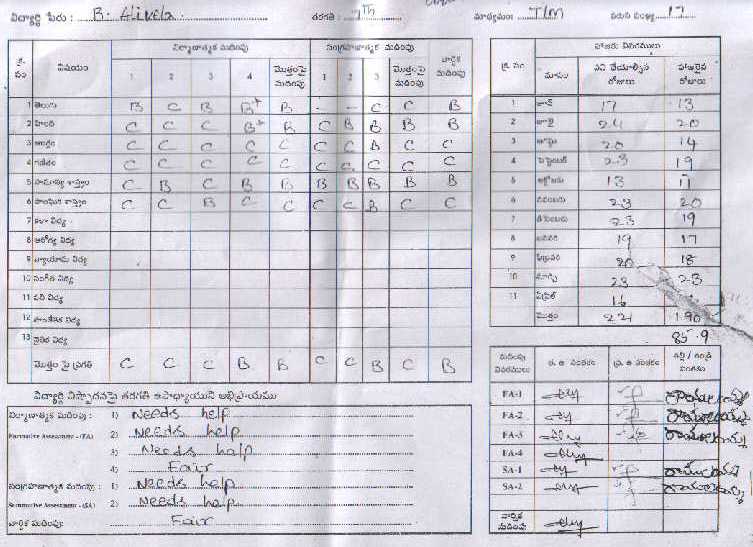 విద్యార్థి పేరు : B. Alivela తరగతి : 7th మాధ్యమం: T/M వరుస సంఖ్య 17
క్ర. సం విషయం నిర్మాణాత్మక మదింపు సంగ్రహణాత్మక మదింపు వార్షిక మదింపు
1 2 3 4 మొత్తంపై మదింపు 1 2 3 మొత్తంపై మదింపు
1 తెలుగు B C B B+ B - - C C B
2 హింది C C C B+ B C B B B B
3 ఆంగ్లం C C C C C C C B C C
4 గణితం C C C C C C C C C C
5 సామాన్య శాస్త్రం C B C B B B B B B B
6 సాంఘిక శాస్త్రం C C B C C C C B C C
7 కళా విద్య
8 ఆరోగ్య విద్య
9 వ్యాయామ విద్య
10 సంగీత విద్య
11 పని విద్య
12 విద్య
13 నైతిక విద్య
మొత్తం పై ప్రగతి C C C B B C C B C B
విద్యార్థి నిష్పాదనపై తరగతి ఉపాధ్యాయుని అభిప్రాయము
నిర్మాణాత్మక మదింపు : 1) Needs help
Formative Assessment - (FA) 2) Needs help
3) Needs help
4) Fair
సంగ్రహణాత్మక మదింపు : 1) Needs help
Summative Assessment - (SA) 2) Needs help
వార్షిక మదింపు: Fair
క్ర. సం హాజరు వివరములు
మాసం పని చేయాల్సిన రోజులు హాజరైన రోజులు
1 జూన్ 17 13
2 జూలై 24 20
3 ఆగష్టు 20 14
4 సెప్టెంబర్ 23 19
5 అక్టోబరు 13 11
6 నవంబరు 23 20
7 డిసెంబరు 23 19
8 జనవరి 19 17
9 ఫిబ్రవరి 20 18
10 మార్చి 23 23
11 ఏప్రిల్ 16
మొత్తం 221 190
85.9
మదింపు వివరములు త. ఉ సంతకం ప్ర. ఉ సంతకం తల్లి / తండ్రి సంతకం
FA-1
FA-2
FA-3
FA-4
SA-1
SA-2
వార్షిక మదింపు